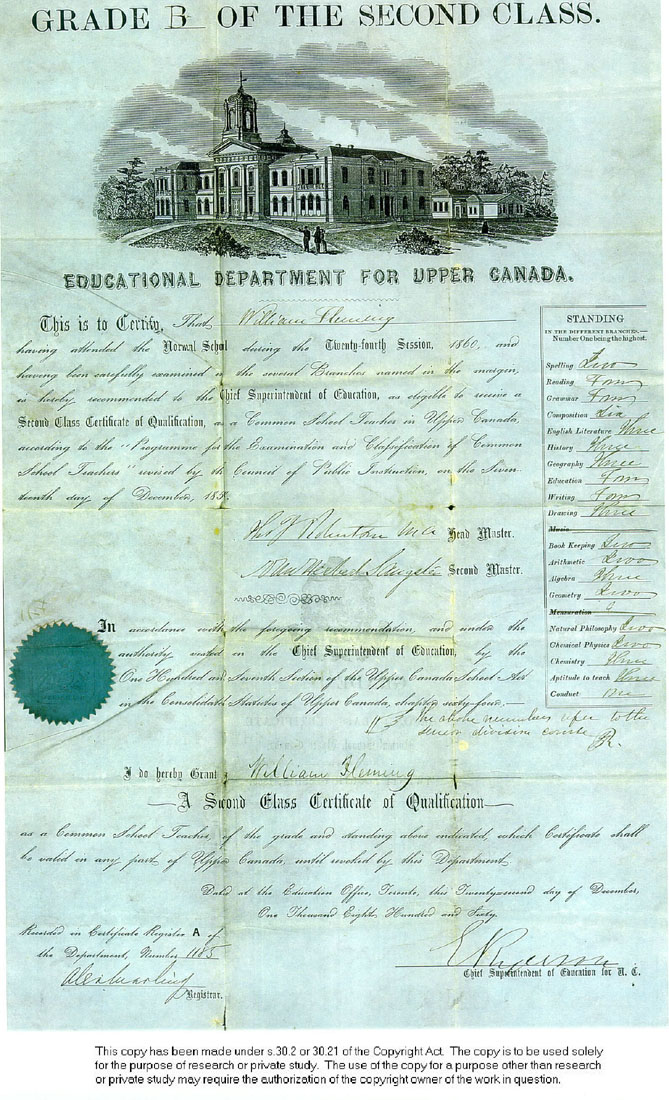 GRADE B OF THE SECOND CLASS.
EDUCATIONAL DEPARTMENT FOR UPPER CANADA.
This is to Certify, That William Fleming
having attended the Normal School during the Twenty-fourth Session, 1860, and
having been carefully examined in the several Branches named in the margin,
is hereby recommended to the Chief Superintendent of Education, as eligible to receive a
Second Class Certificate of Qualification, as a Common School Teacher in Upper Canada,
according to the "Programme for the Examination and Classification of Common
School Teachers" revised by the Council of Public Instruction, on the Seven-
teenth day of December, 185
Robertson Head Master.
Herbert Sangster Second Master.
STANDING
IN THE DIFFERENT BRANCHES.—
Number One being the highest.
Spelling Two
Reading Four
Grammar Four
Composition Six
English Literature Three
History Three
Geography Three
Education Four
Writing Four
Drawing Three
Music
Book Keeping Two
Arithmetic Two
Algebra Three
Geometry Two
Mensuration
Natural Philosophy Two
Chemical Physics Two
Chemistry Three
Aptitude to teach Three
Conduct One
In accordance with the foregoing recommendation, and under the
authority vested in the Chief Superintendent of Education, by the
One Hundred and Seventh Section of the Upper Canada School Act
in the Consolidated Statutes of Upper Canada, chapter sixty-four,—
The above numbers refer to the
division course
I do hereby Grant William Fleming
A Second Class Certificate of Qualification
as a Common School Teacher, of the grade and standing above indicated, which Certificate shall
be valid in any part of Upper Canada, until revoked by this Department.
Dated at the Education Office, Toronto, this Twenty-second day of December,
One Thousand Eight Hundred and Sixty.
Recorded in Certificate Register A of
the Department, Number 1185
Alex Marling
Registrar.
E Ryerson
Chief Superintendent of Education for U. C.
This copy has been made under s.30.2 or 30.21 of the Copyright Act. The copy is to be used solely
for the purpose of research or private study. The use of the copy for a purpose other than research
or private study may require the authorization of the copyright owner of the work in question.